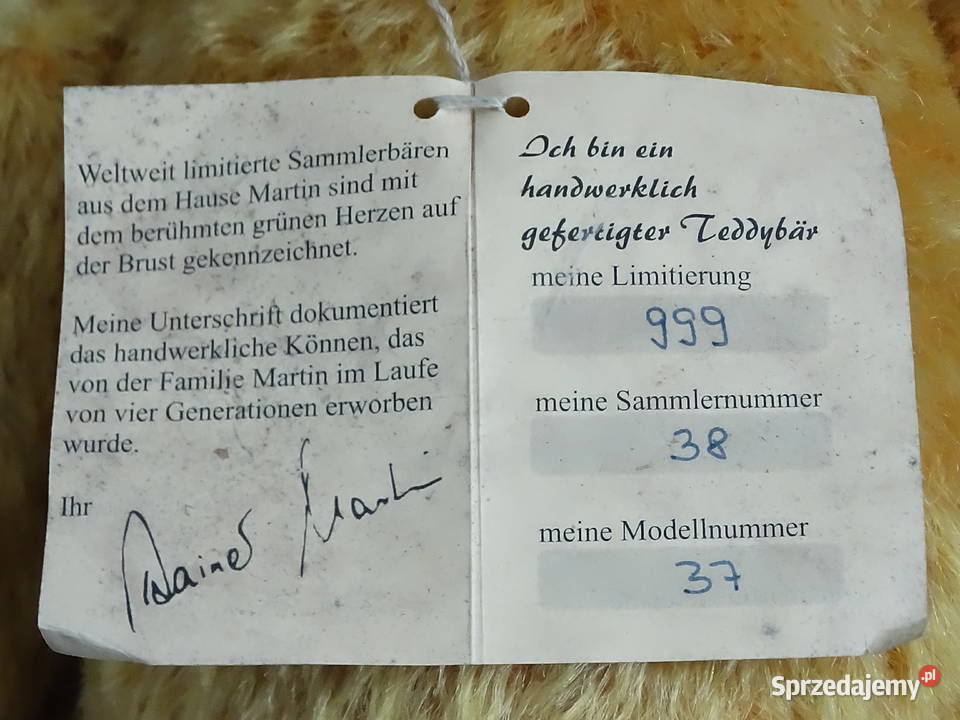 Weltweit limitierte Sammlerbären
aus dem Hause Martin sind mit
dem berühmten grünen Herzen auf
der Brust gekennzeichnet.
Meine Unterschrift dokumentiert
das handwerkliche Können, das
von der Familie Martin im Laufe
von vier Generationen erworben
wurde.
Ihr
Rainer Martin
Ich bin ein
handwerklich
gefertigter Teddybär
meine Limitierung
999
meine Sammlernummer
38
meine Modellnummer
37
Sprzedajemy.pl